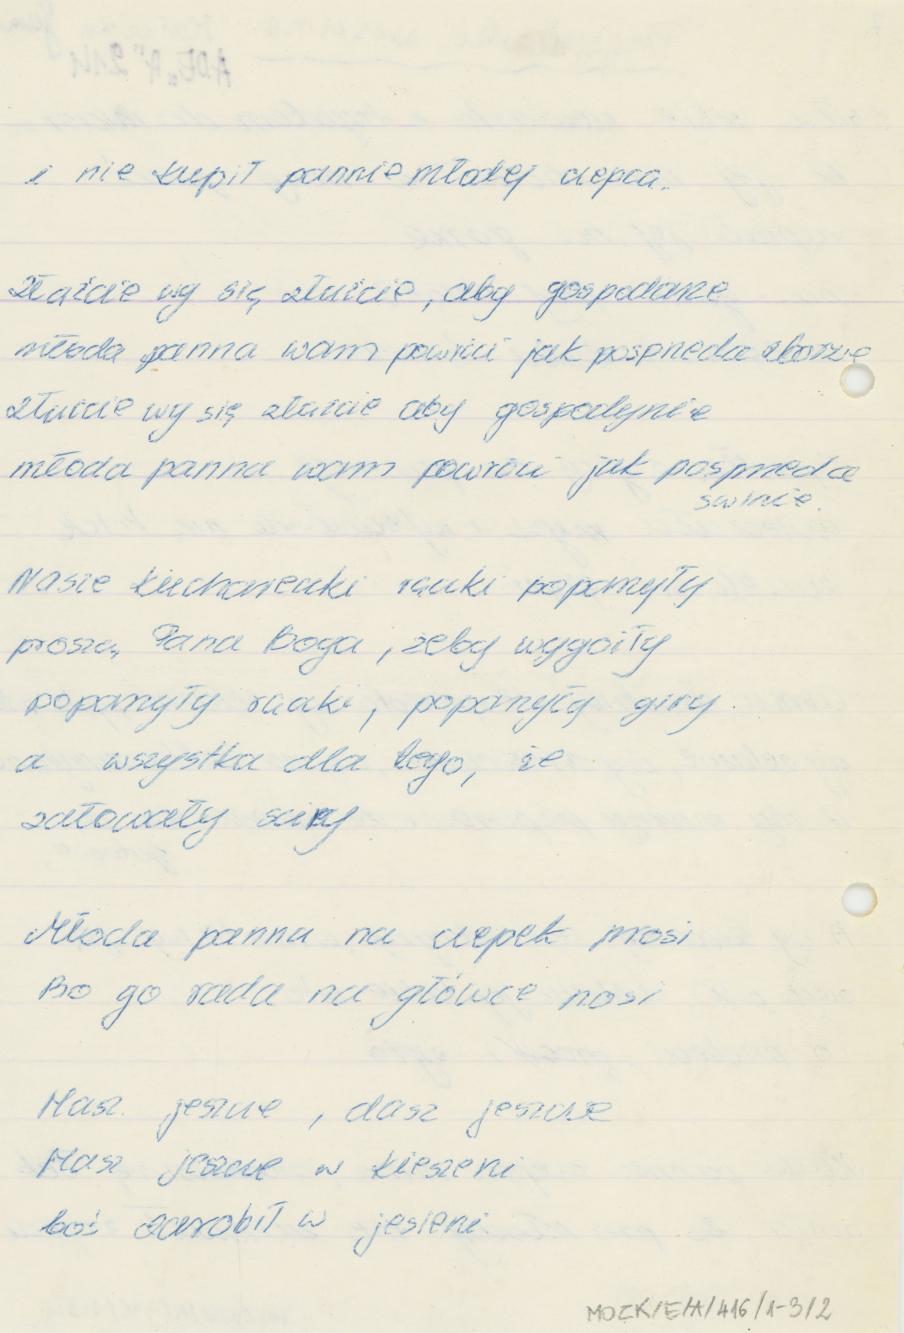 i nie kupił pannie młodej czepca.
Złóżcie wy się, złóżcie, aby gospodarze
młoda panna wam powróci jak posprzeda zborze
złóżcie wy się złóżcie aby gospodynie
młoda panna wam powróci jak posprzeda
świnie.
Nasze kuchareczki rączki popoparzyły
proszą Pana Boga, żeby wygoiły
poparzyły rączki, poparzyły giry
a wszystka dla tego, że
żałowały ściry
Młoda panna na czepek prosi
Bo go rada na główce nosi
Masz jeszcze, dasz jeszcze
Masz jeszcze w kieszeni
boś zarobił w jesieni
MOZK/E/A/416/1-3/2